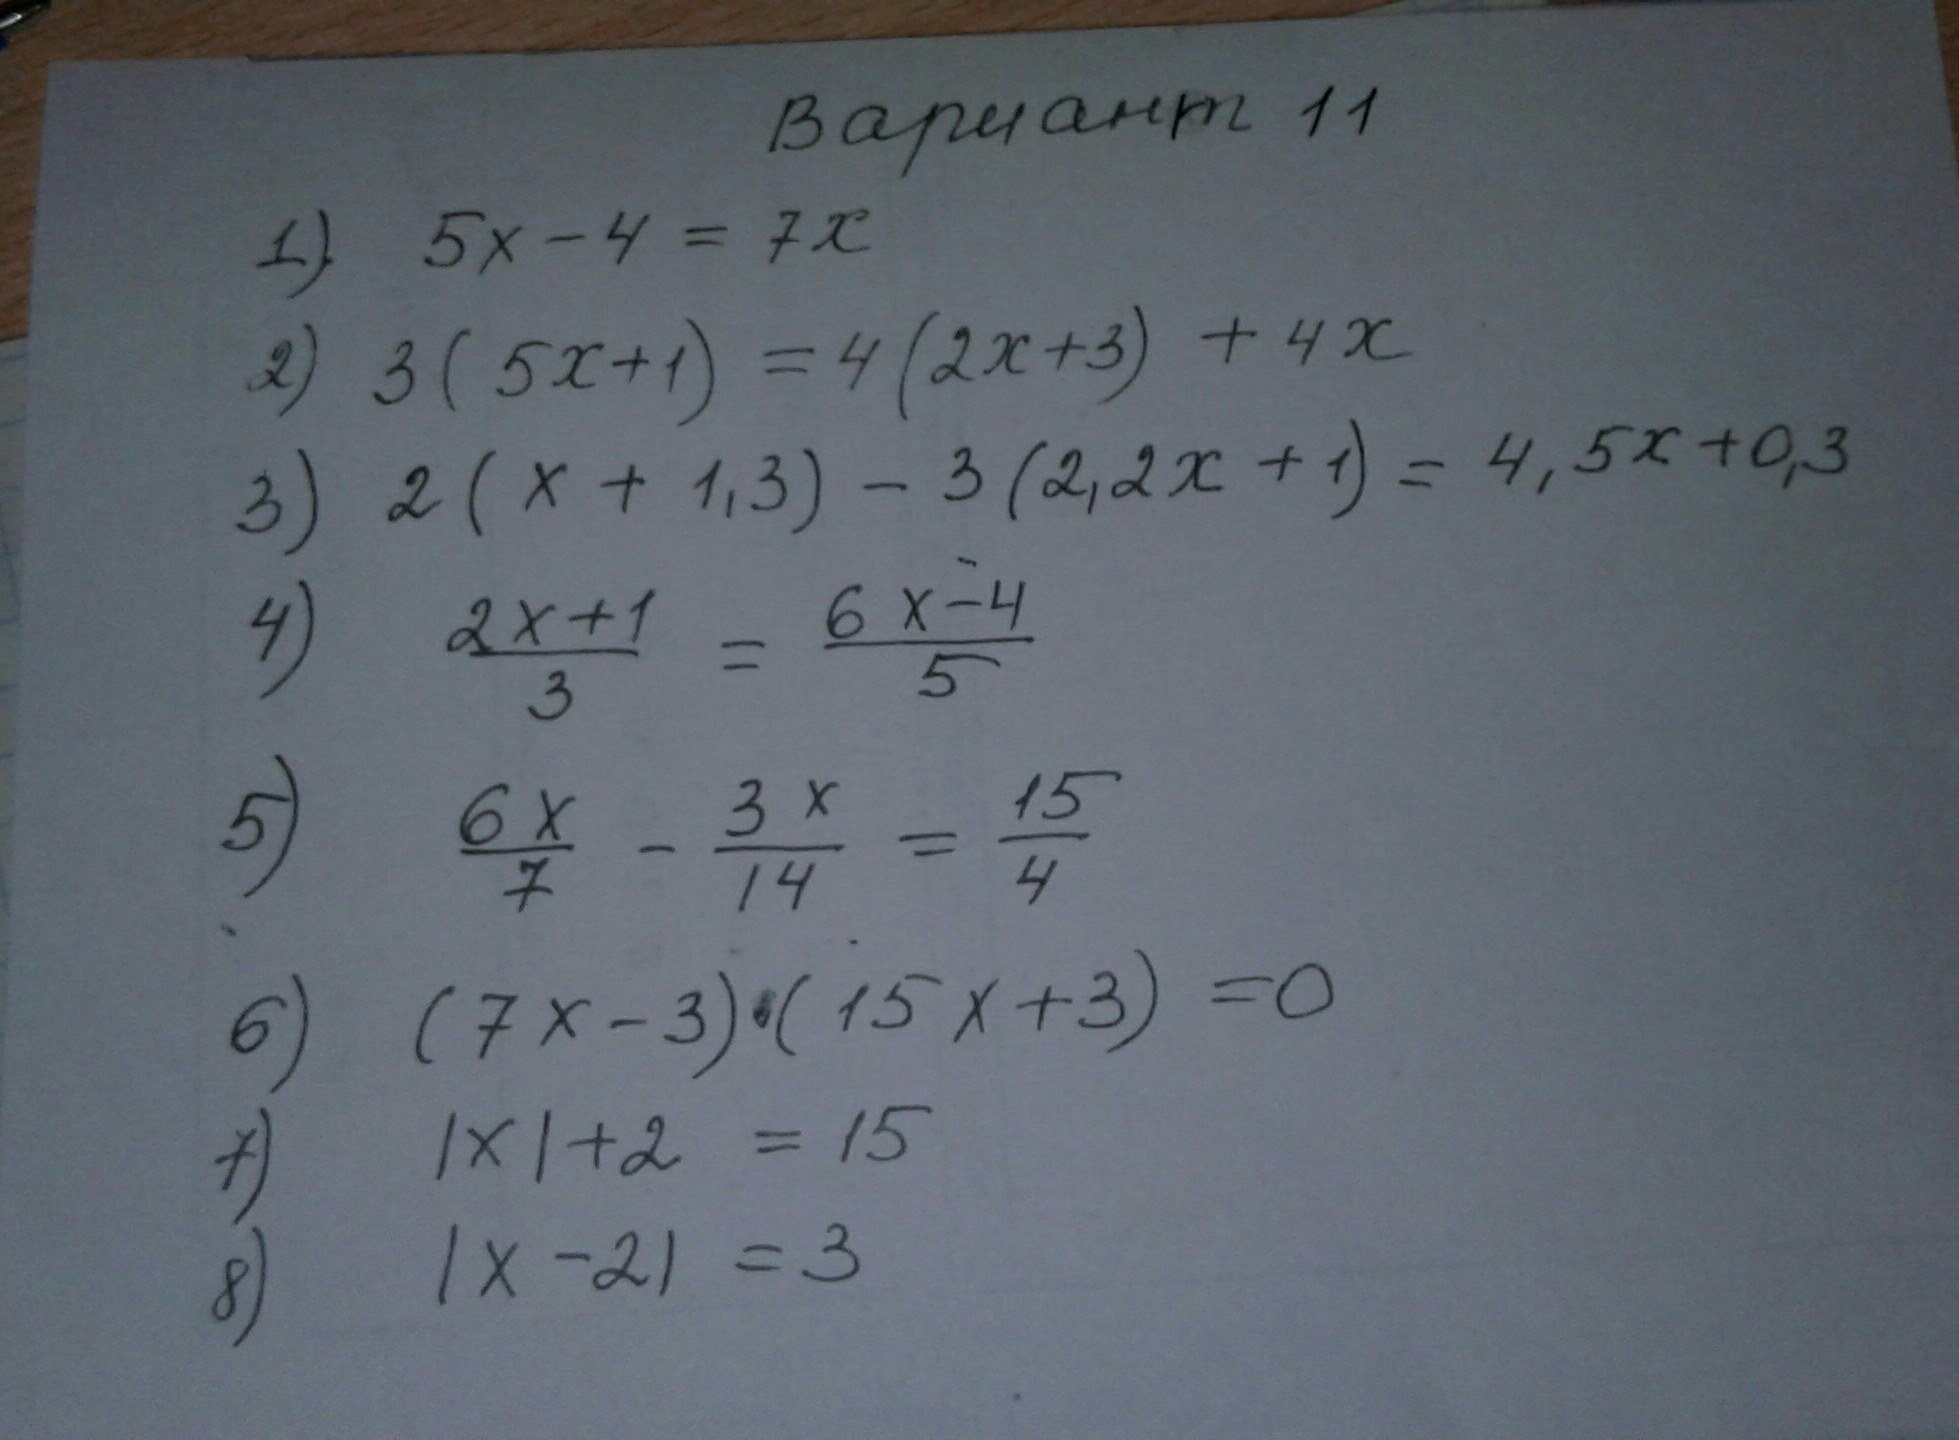 Вариант 11
1) 5x - 4 = 7x
2) 3(5x+1) = 4(2x+3) + 4x
3) 2(x + 1,3) - 3(2,2x + 1) = 4,5x+0,3
4) \frac{2x+1}{3} = \frac{6x-4}{5}
5) \frac{6x}{7} - \frac{3x}{14} = \frac{15}{4}
6) (7x-3)·(15x+3) = 0
7) |x|+2 = 15
8) |x-2| = 3